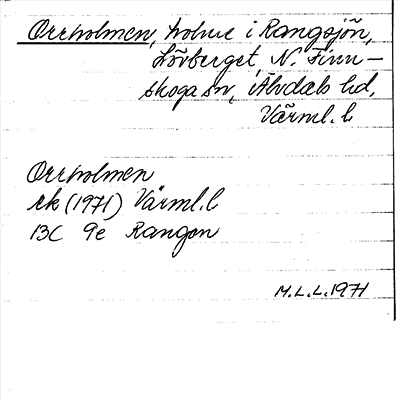 Orrholmen, holme i Rangsjön,
Lövberget, N. Finn-
skoga sn, Älvdals hd,
Värml. l
Orrholmen
rk (1971) Värml. l
13C 9e Rangen
M.L.L. 1971